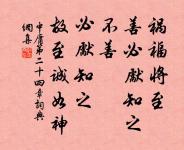 禍福將至
善必獻知之
不善
必獻知之
故至誠如神
中庸第二十四章詞典
網集